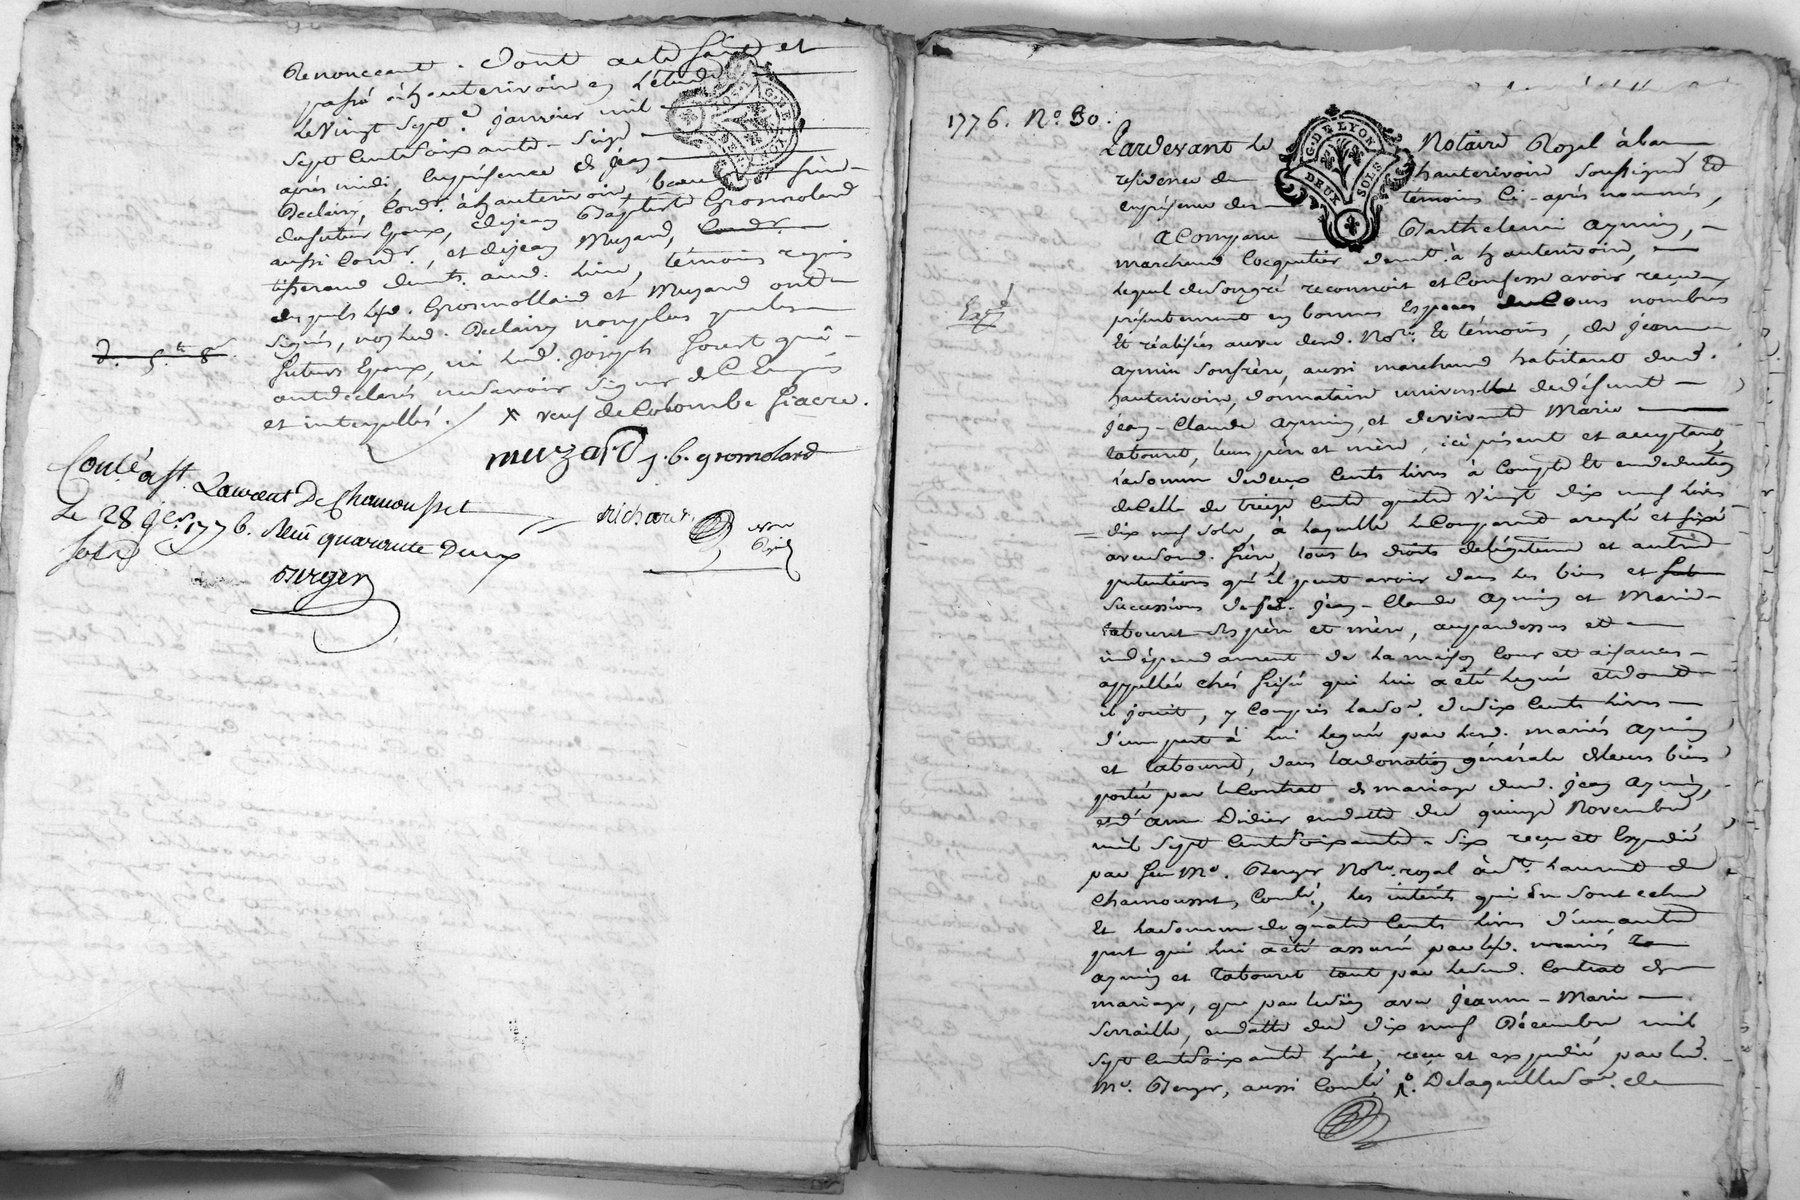 Renonceant. Dont acte fait et
passé à hauterivoire en l'étude
le vingt sept.e janvier mil
sept cent soixante-seize
après midi, en présence de jean
Declairy, Cord.r à hauterivoire, beau frère
du futur Epoux, de jean Baptiste Gromolard
aussi Cord.r, et de jean Muzard,
tisserand demt. aud. lieu, témoins requis
desquels lesd. Gromollard et Muzard ont
signés, non led. Declairy non plus que les
futurs Epoux, ni led. joseph qui
ont déclarés ne savoir signer de ce Enquis
et interpellés. x veuf de Colombe fiacre.
muzard j. b. gromolard
Conlé à St. Laurent De Chamousset
Le 28 jer 1776. Reçu quarante Deux
sols
richard
Berger
1776. N.o 30.
G. DE LYON
DEUX SOLS
Pardevant le Notaire Royal à la
résidence de hauterivoire soussigné Et
en présence des témoins Ci-après nommés,
a Comparu Barthelemi aymin,
marchand Cocquetier demt. à hauterivoire,
lequel de son gré reconnoit et Confesse avoir reçu
présentement en bonnes Especes du Cours nombrées
Et réalisées au vu dud. No.re Et témoins, de jean
aymin son frère, aussi marchand habitant dud.
hauterivoire, donnataire universel de défunt
jean-Claude aymin, et de vivante Marie
tabouret, leurs père et mère, ici présent et acceptant,
la somme de deux Cents livres à Compte Et en deduction
de Celle de treize Cent quatre vingt dix neuf livres
dix neuf sols, à laquelle le Comparant a reglé et fixé
avec sond. frère, tous les droits de légitime et autres
prétentions qu'il peut avoir dans les biens et
successions desd. jean-Claude aymin et Marie
tabouret ses père et mère, au pardessus et
indépendamment de la maison Cour et aisances
appellée chés frisé qui lui a été leguée et dont
il jouit, y Compris la so.e de dix Cents livres
d'une part à lui leguée par lesd. mariés aymin
et tabouret, dans la donation générale de leurs biens
portée par le Contrat de mariage dud. jean aymin,
et d'anne Didier en datte du quinze Novembre
mil sept Cent soixante-six reçu et Expédié
par feu M.e Berger No.re royal à St. Laurent de
Chamousset, Conlé, les interêts qui En sont echus
Et la somme de quatre Cents livres d'une autre
part qui lui a été assurée par lesd. mariés
aymin et tabouret tant par led. Contrat de
mariage, que par le sien avec jeanne-Marie
Serraille, en datte du dix neuf Décembre mil
sept Cent soixante huit, reçu et expédié par led.
M.e Berger, aussi Conlé. De laquelle so.e de